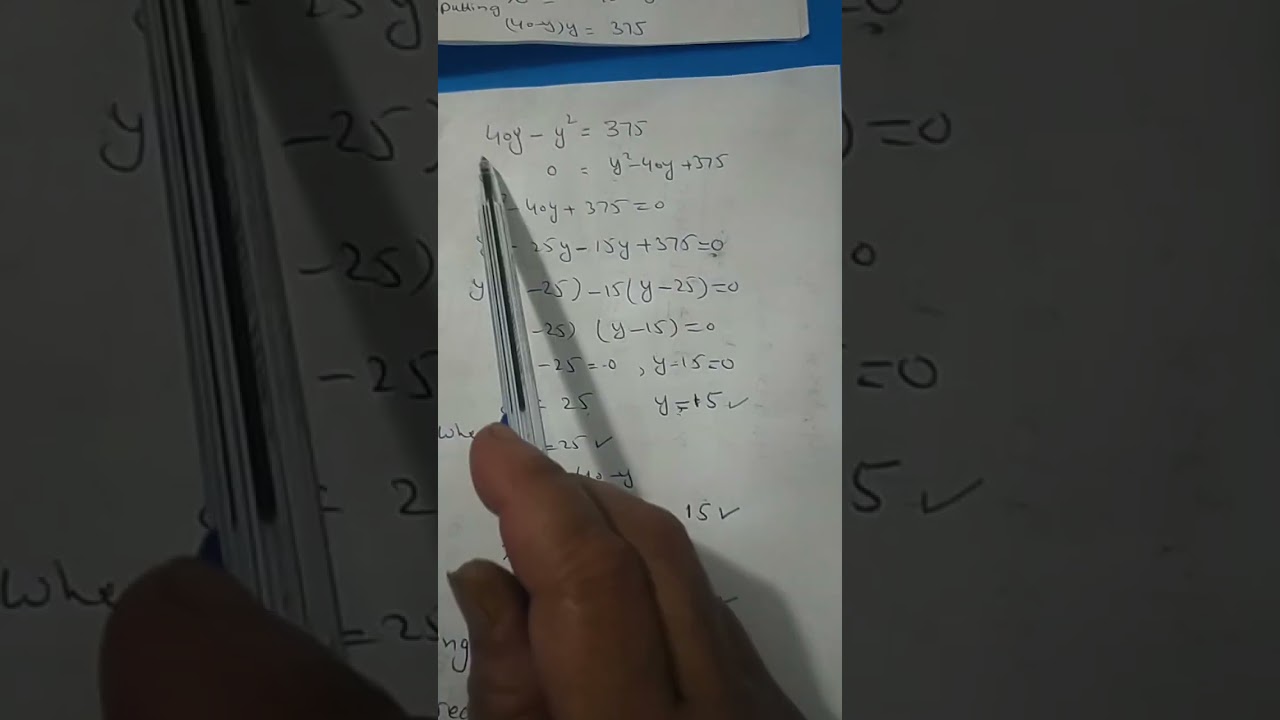 Putting
(40-y)y = 375
40y - y² = 375
0 = y²-40y+375
- 40y + 375=0
- 25y-15y+375=0
y -25) -15(y-25)=0
-25) (y-15)=0
-25=0 , y-15=0
= 25 y=15 ✓
=25 ✓
40-y
15 ✓